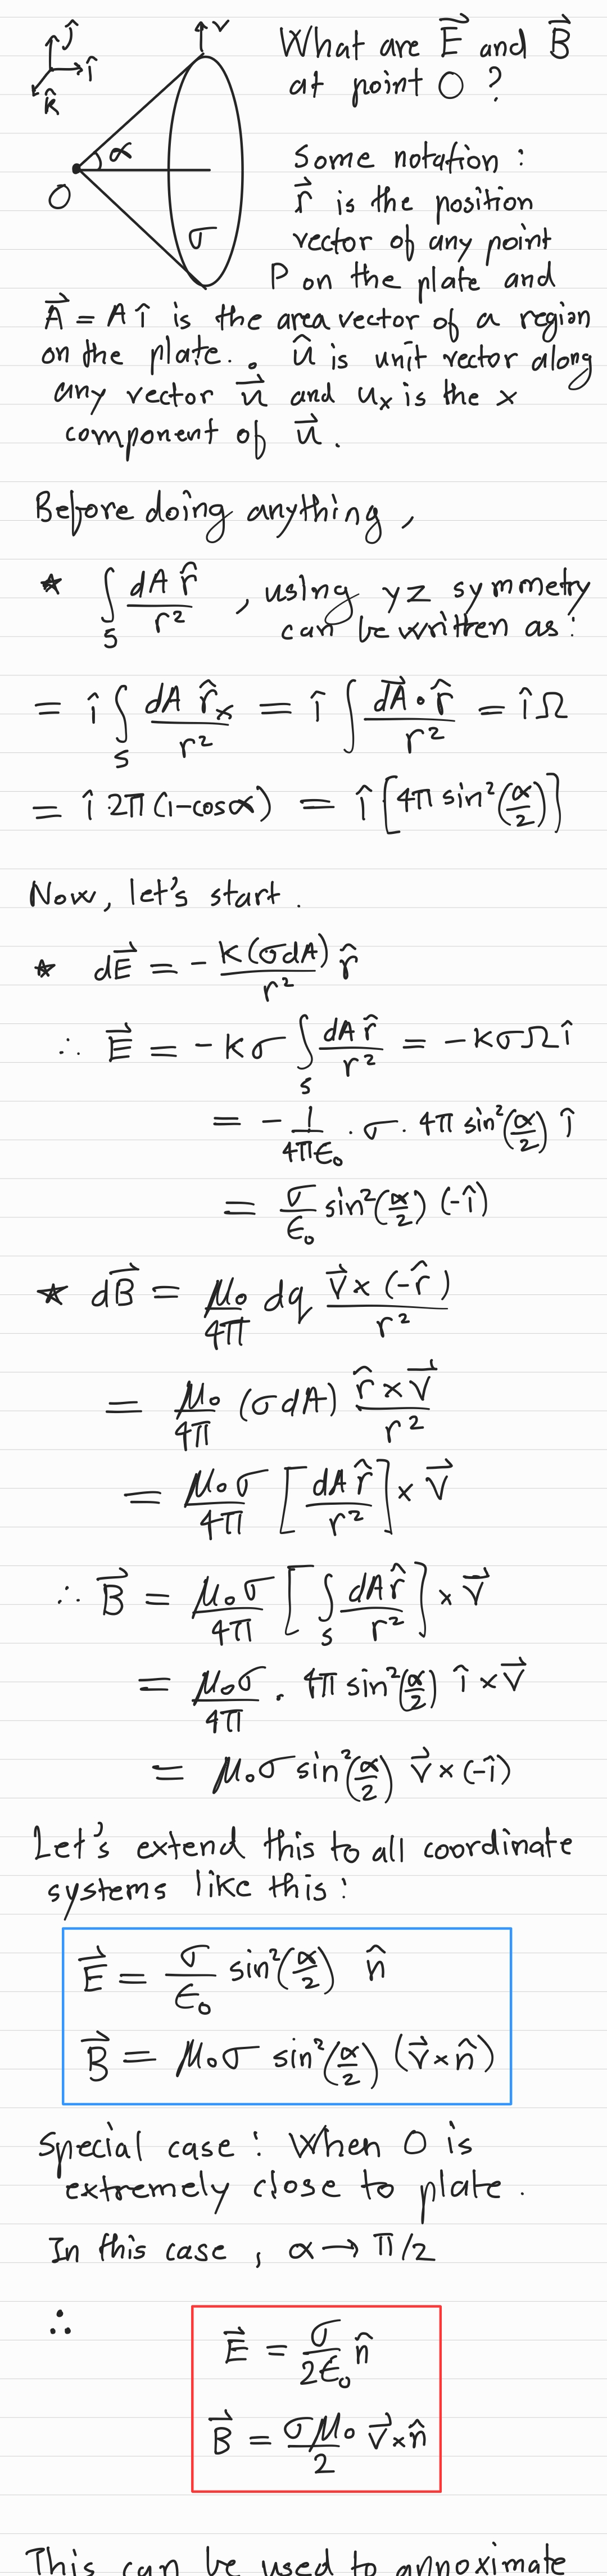 ĵ
î
k̂
v
α
O
σ
What are E⃗ and B⃗
at point O ?
Some notation :
r⃗ is the position
vector of any point
P on the plate and
A⃗ = A î is the area vector of a region
on the plate. . û is unit vector along
any vector u⃗ and uₓ is the x
component of u⃗ .
Before doing anything ,
* ∫_S dA r̂ / r² , using yz symmetry
can be written as :
= î ∫_S dA r̂ₓ / r² = î ∫ dA⃗ • r̂ / r² = î Ω
= î 2π (1-cosα) = î [4π sin²(α/2)]
Now, let's start .
* dE⃗ = - K(σdA) / r² r̂
∴ E⃗ = - Kσ ∫_S dA r̂ / r² = -KσΩ î
= - 1/4πϵ₀ . σ . 4π sin²(α/2) î
= σ/ϵ₀ sin²(α/2) (-î)
* dB⃗ = μ₀/4π dq v⃗ x (-r̂) / r²
= μ₀/4π (σ dA) r̂ x v⃗ / r²
= μ₀σ/4π [dA r̂ / r²] x v⃗
∴ B⃗ = μ₀σ/4π [∫_S dA r̂ / r²] x v⃗
= μ₀σ/4π . 4π sin²(α/2) î x v⃗
= μ₀σ sin²(α/2) v⃗ x (-î)
Let's extend this to all coordinate
systems like this :
E⃗ = σ/ϵ₀ sin²(α/2) n̂
B⃗ = μ₀σ sin²(α/2) (v⃗ x n̂)
Special case : When O is
extremely close to plate .
In this case , α → π/2
∴
E⃗ = σ/2ϵ₀ n̂
B⃗ = σμ₀/2 v⃗ x n̂
This can be used to